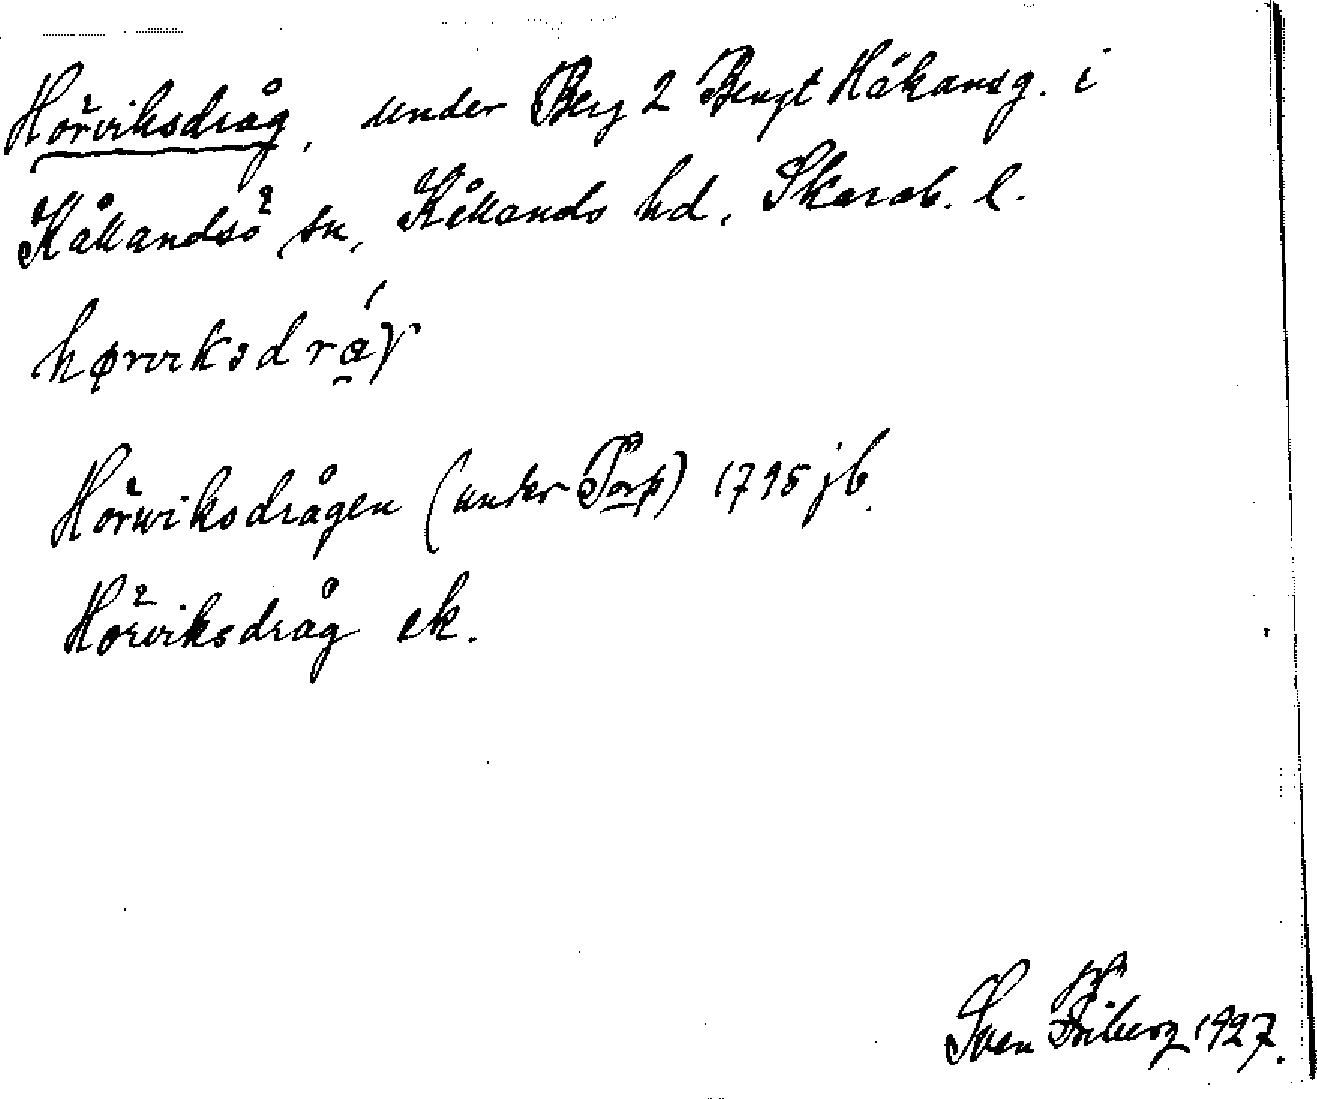 Hörviksdråg, under Berg 2 Bengt Håkansg. i
Kållandsö sn, Kållands hd, Skarab. l.
hørviksdrá̱γ
Hörwiksdrågen (under Torp) 1795 jb.
Hörviksdråg ek.
Sven Friberg 1927.